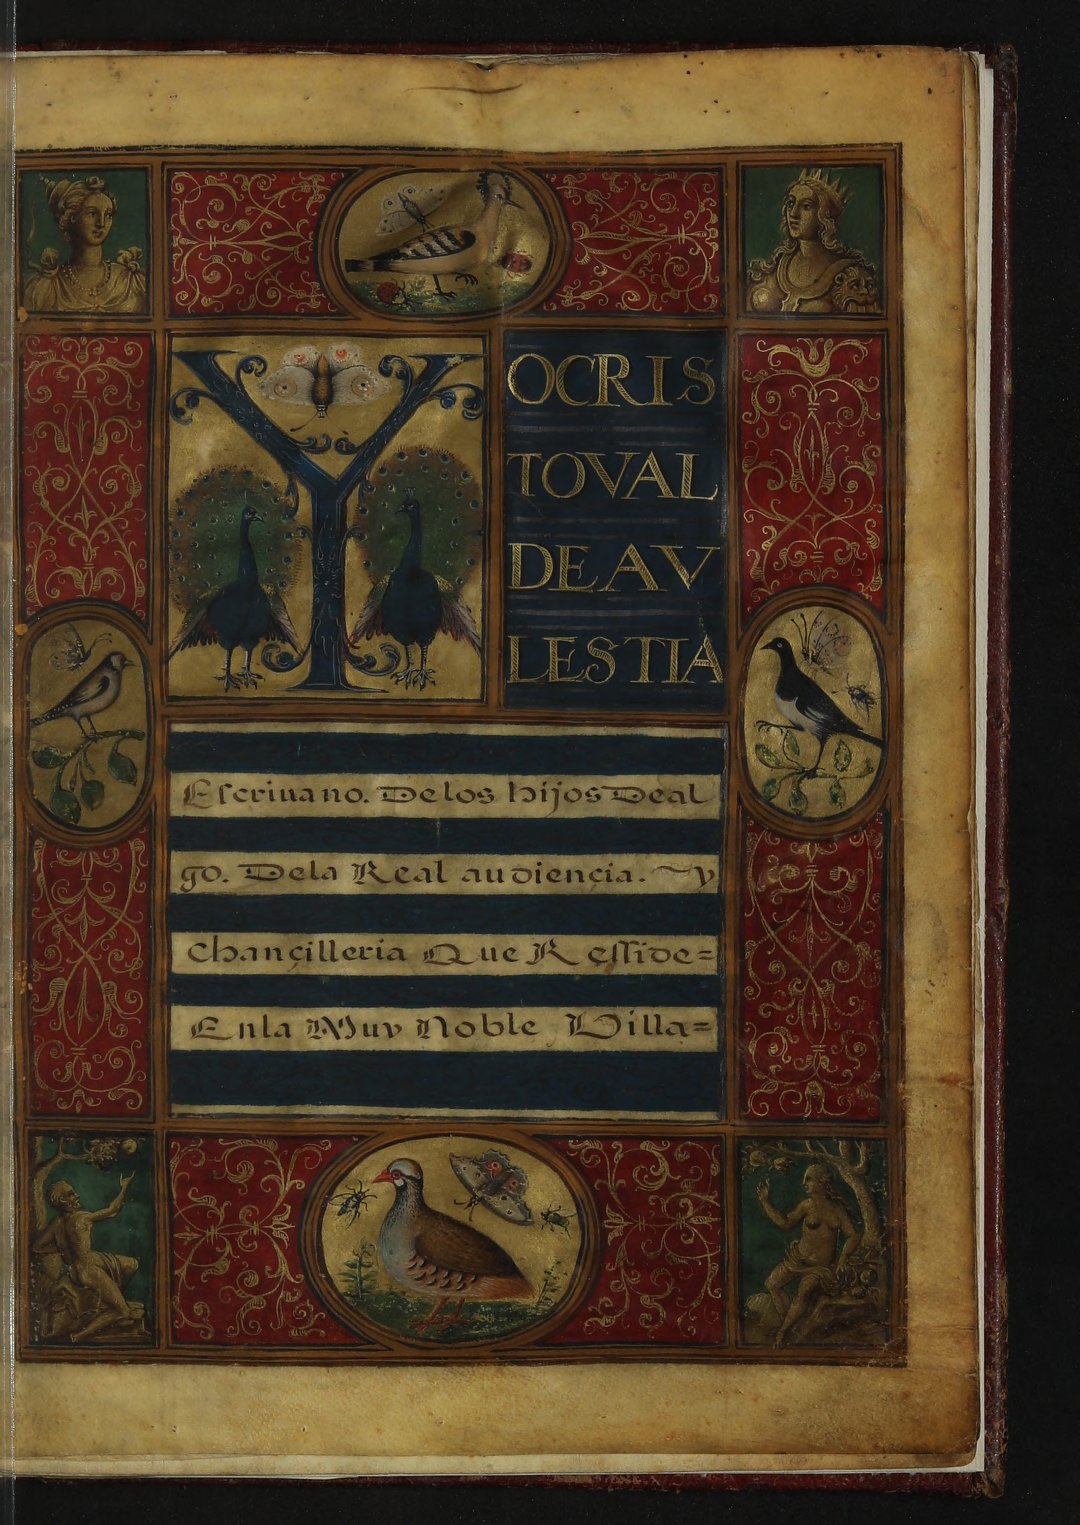 YOCRIS
TOVAL
DEAV
LESTIA
Escriuano. De los hijos Deal
go. Dela Real audiençia. ~y
Chançilleria Que Resside=
Enla Muy Noble Villa=